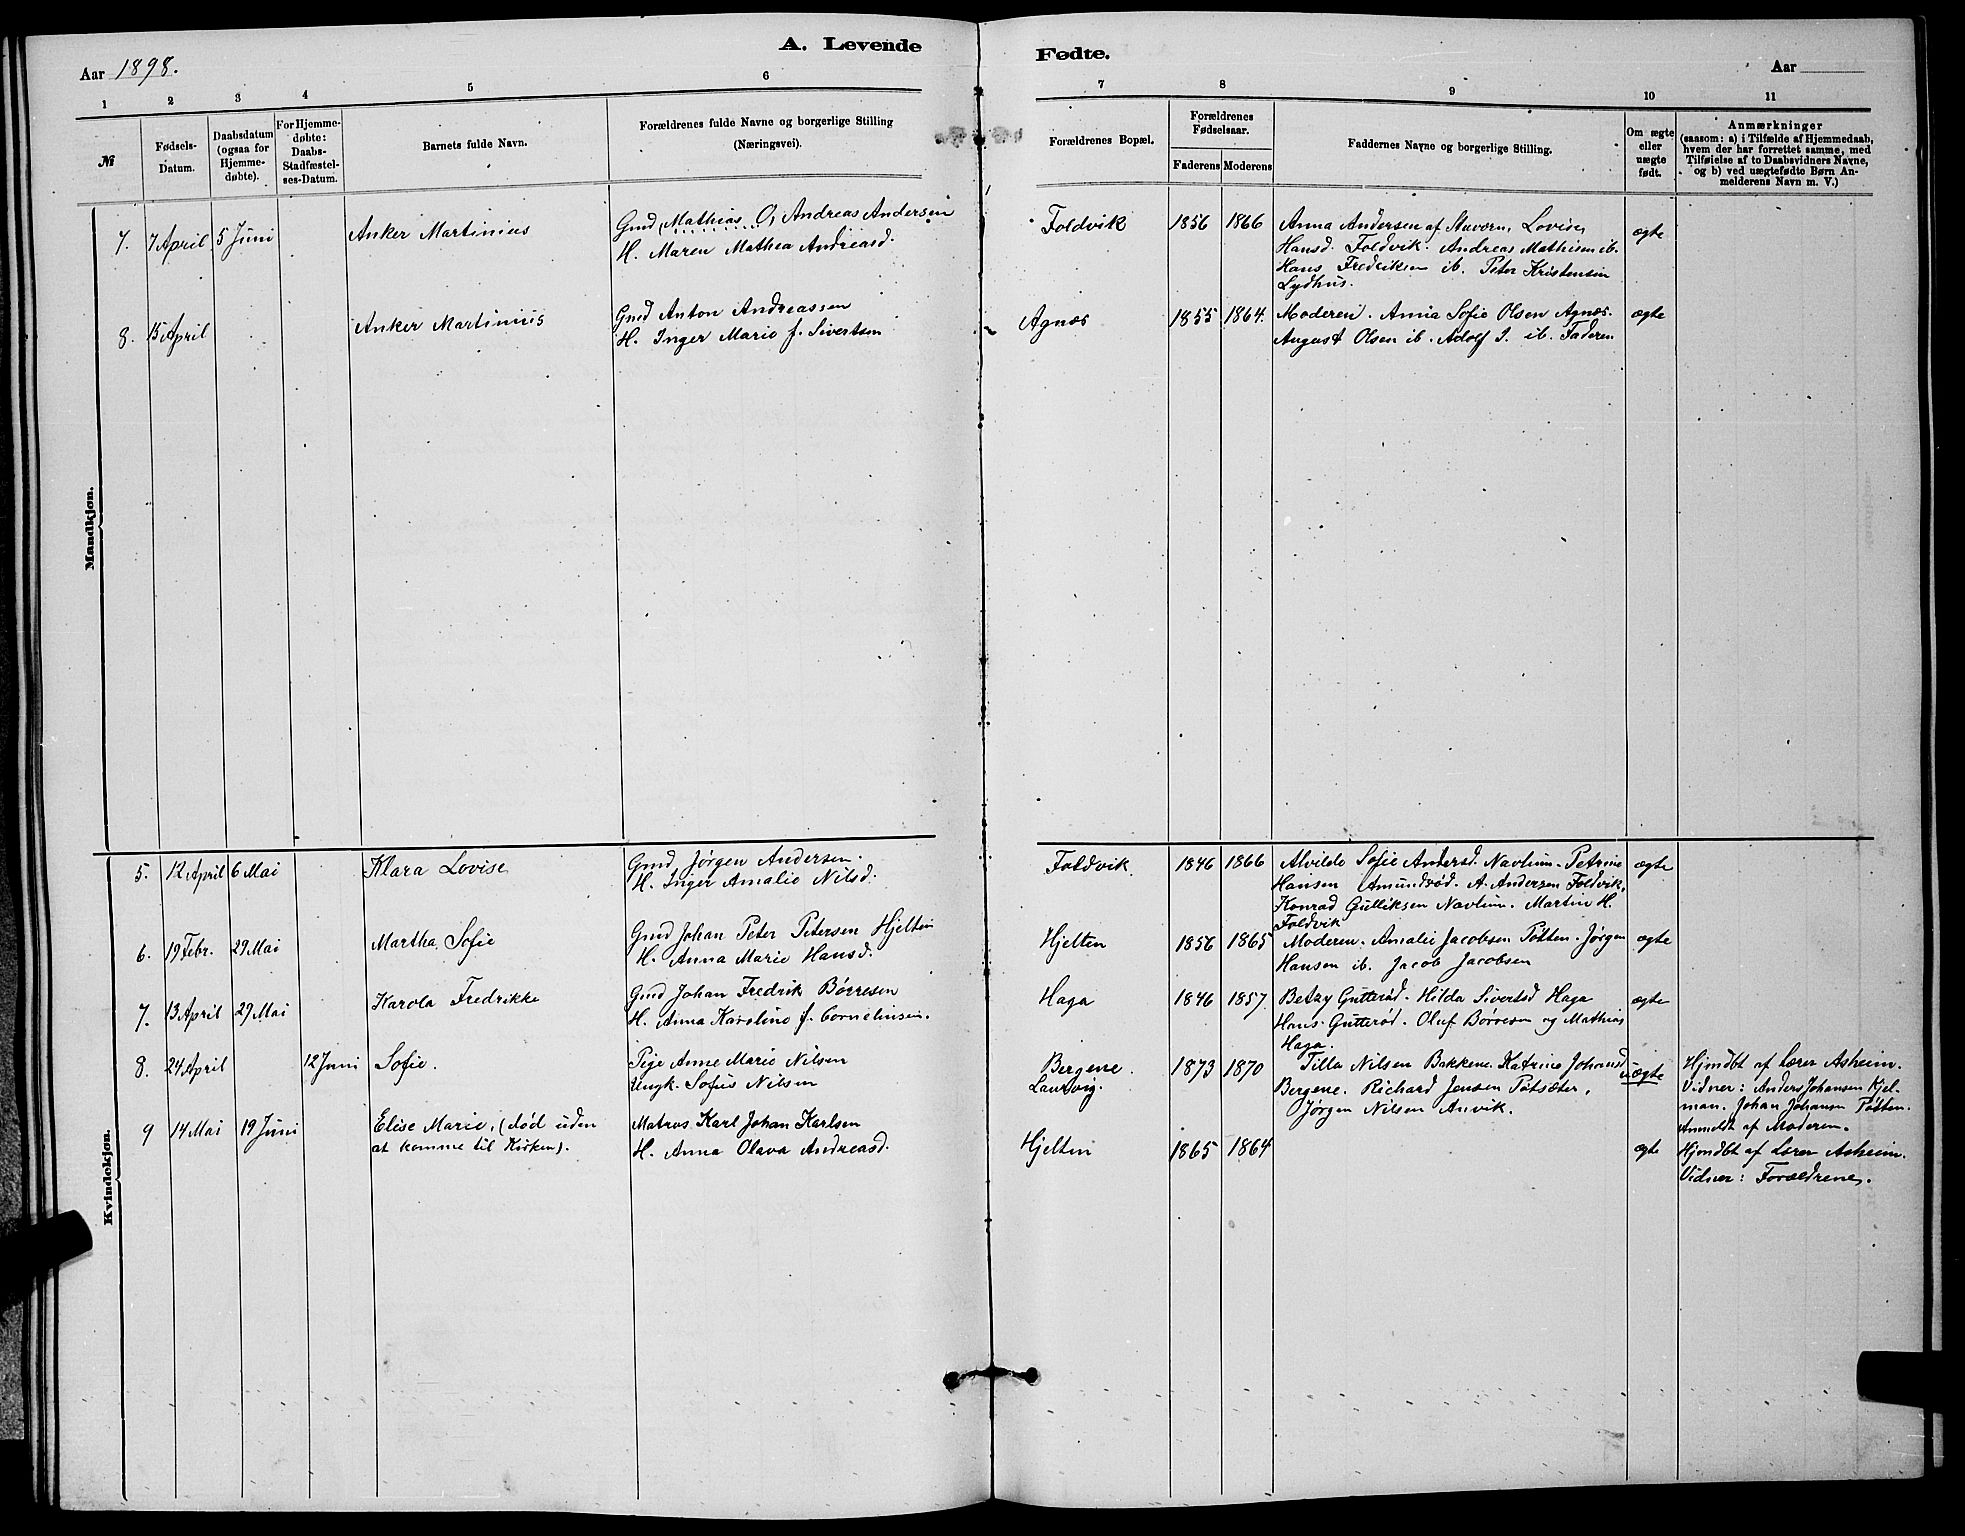 A. Levende
Fødte.
Aar 1898.
Aar
1 2 3 4 5 6 7 8 9 10 11
№
Fødsels-
Datum.
Daabsdatum
(ogsaa for
Hjemme-
døbte).
For Hjemme-
døbte:
Daabs-
Stadfæstel-
ses-Datum.
Barnets fulde Navn.
Forældrenes fulde Navne og borgerlige Stilling
(Næringsvei).
Forældrenes Bopæl.
Forældrenes
Fødselsaar.
Faderens Moderens
Faddernes Navne og borgerlige Stilling.
Om ægte
eller
uægte
født.
Anmærkninger
(saasom: a) i Tilfælde af Hjemmedaab,
hvem der har forrettet samme, med
Tilføielse af to Daabsvidners Navne,
og b) ved uægtefødte Børn An-
melderens Navn m. V.)
Mandkjøn.
7. 7 April 5 Juni Anker Martinius
Gmd. Mathias O. Andreas Andersen
H. Maren Mathea Andreasd.
Foldvik 1856 1866
Anna Andersen af Stavern, Lovise
Hansd. Foldvik. Andreas Mathisen ib.
Hans Fredriksen ib. Peter Kristensen
Lydhus.
ægte
8. 15 April Anker Martinius
Gmd Anton Andreassen
H. Inger Marie f. Sivertsen
Agnæs 1855 1864.
Moderen. Anna Sofie Olsen Agnæs.
August Olsen ib. Adolf J. ib. Faderen
ægte
Kvindekjøn.
5. 12 April 6 Mai Klara Lovise
Gmd. Jørgen Andersen.
H. Inger Amalie Nilsd.
Foldvik 1846 1866
Alvilde Sofie Andersd. Navlum. Petrine
Hansen Amundrød. A. Andersen Foldvik,
Konrad Gulliksen Navlum. Martin H.
Foldvik
ægte
6. 19 Febr. 29 Mai Martha Sofie
Gmd Johan Peter Petersen Hjelten
H. Anna Marie Hansd.
Hjelten 1856 1865
Moderen. Amalie Jacobsen Tøtten. Jørgen
Hansen ib. Jacob Jacobsen
ægte
7. 13 April 29 Mai Karola Fredrikke
Gmd Johan Fredrik Børresen
H. Anna Karoline f. Corneliusen.
Haga 1846 1857.
Betzy Gutterød. Hilda Sivertsd Haga
Hans Gutterød. Oluf Børresen og Mathias
Haga.
ægte
8. 24 April 12 Juni Sofie.
Pige Anne Marie Nilsen
Ungk. Sofus Nilsen
Bergene.
Laurvig.
1873 1870
Tilla Nilsen Bakkene. Katrine Johansd
Bergene. Richard Jensen Tøtsæter,
Jørgen Nilsen Anvik.
uægte
Hjmdbt af Lærer Asheim.
Vidner: Anders Johansen Kjel-
man. Johan Johansen Tøtten.
Anmeldt af Moderen.
9 14 Mai 19 Juni Elise Marie, (død uden
at komme til Kirken).
Matros Karl Johan Karlsen
H. Anna Olava Andreasd.
Hjelten 1865 1864 ægte
Hjmdbt af Lærer Asheim.
Vidner: Forældrene.